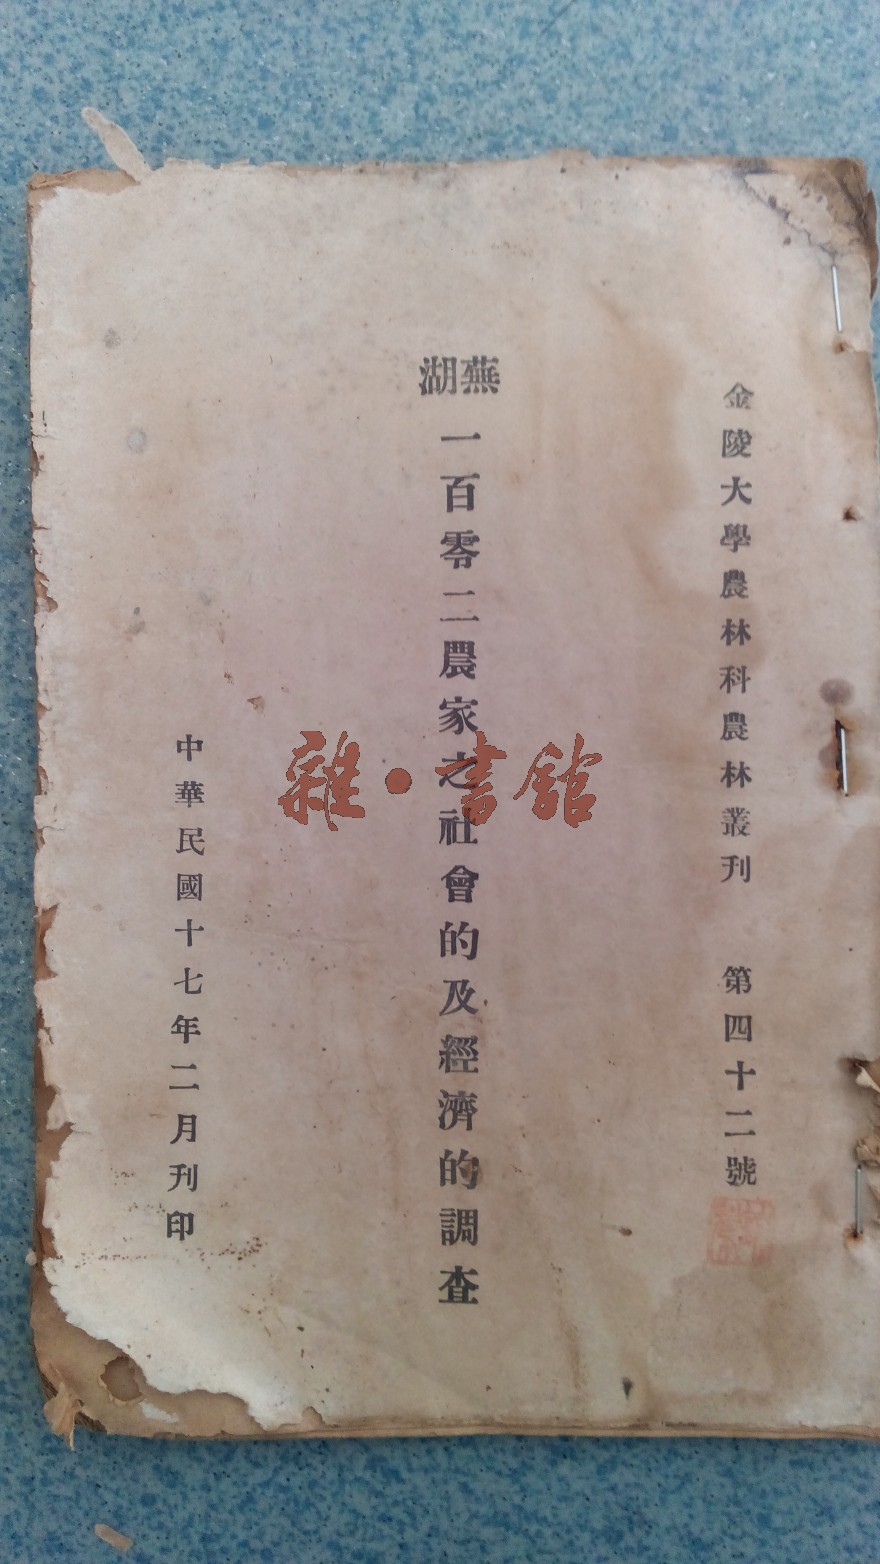 金陵大學農林科農林叢刊 第四十二號
蕪湖
一百零二農家之社會的及經濟的調查
中華民國十七年二月刊印
雜·書館